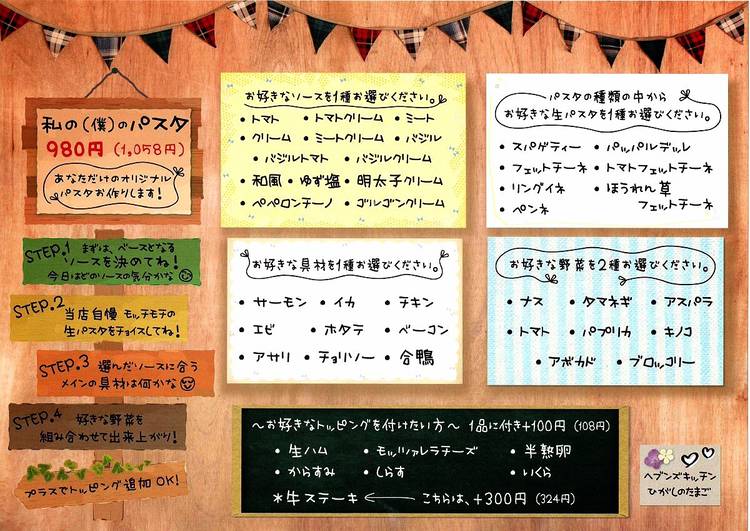 私の(僕)のパスタ
980円 (1,058円)
あなただけのオリジナル
パスタお作りします!
STEP.1 まずは、ベースとなる
ソースを決めてね!
今日はどのソースの気分かな
STEP.2 当店自慢 モッチモチの
生パスタをチョイスしてね!
STEP.3 選んだソースに合う
メインの具材は何かな
STEP.4 好きな野菜を
組み合わせて出来上がり!
プラスでトッピング追加OK!
お好きなソースを1種お選びください。
・トマト ・トマトクリーム ・ミート
・クリーム ・ミートクリーム ・バジル
・バジルトマト ・バジルクリーム
・和風 ・ゆず塩 ・明太子クリーム
・ペペロンチーノ ・ゴルゴンクリーム
パスタの種類の中から
お好きな生パスタを1種お選びください。
・スパゲティー ・パッパルデッレ
・フェットチーネ ・トマトフェットチーネ
・リングイネ ・ほうれん草
・ペンネ フェットチーネ
お好きな具材を1種お選びください。
・サーモン ・イカ ・チキン
・エビ ・ホタテ ・ベーコン
・アサリ ・チョリソー ・合鴨
お好きな野菜を2種お選びください。
・ナス ・タマネギ ・アスパラ
・トマト ・パプリカ ・キノコ
・アボカド ・ブロッコリー
〜お好きなトッピングを付けたい方〜 1品に付き+100円 (108円)
・生ハム ・モッツァレラチーズ ・半熟卵
・からすみ ・しらす ・いくら
*牛ステーキ ← こちらは、+300円 (324円)
ヘブンズキッチン
ひがしのたまご